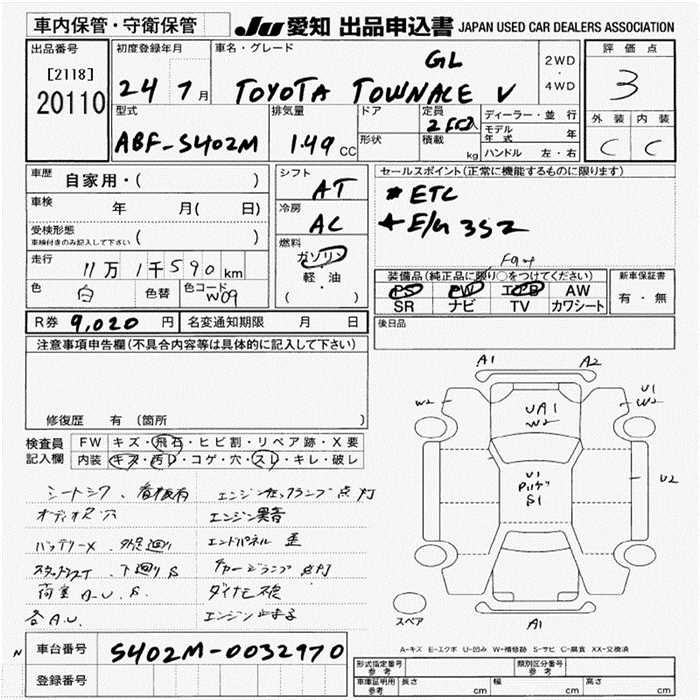 車内保管・守衛保管
JU 愛知 出品申込書 JAPAN USED CAR DEALERS ASSOCIATION
出品番号
[2118]
20110
初度登録年月
24 7月
車名・グレード
GL
TOYOTA TOWNACE V
2WD
・
4WD
評価点
3
外装 内装
C C
型式
ABF-S402M
排気量
1.49 CC
ドア
形状
定員
積載
kg
ディーラー・並行
モデル年式 年
ハンドル 左・右
車歴 自家用・( )
車検 年 月(日)
受検形態
車検付きのみ記入して下さい ( )
走行
11万1千590km
色 白 色替 色コード W09
R券 9,020 円 名変通知期限 月 日
シフト
AT
冷房
AC
燃料
ガソリン
軽油
( )
セールスポイント(正常に機能するものに限ります)
* ETC
* E/G 3SZ
装備品(純正品に限り○をつけてください)
PS PW エアB AW
SR ナビ TV カワシート
新車保証書
有・無
後日品
注意事項申告欄(不具合内容等は具体的に記入して下さい)
修復歴 有 (箇所 )
検査員
記入欄
FW キズ・飛石・ヒビ割・リペア跡・X要
内装 キズ・汚レ・コゲ・穴・スレ・キレ・破レ
シートシワ、看板有
エンジンセックランプ点灯
オーディオス穴
エンジン異音
バッテリーX
エンドパネル 歪
下廻りS
チャージランプ点灯
荷室A.U.S.
各A.U.
A1 A2
W2
U1
W2
UA1
W2
U2
U1
S1
A1
スペア
A-キズ E-エクボ U-凹み W-補修跡 S-サビ C-腐食 XX-交換済
N
車台番号 S402M-0032970
登録番号
形式指定番号
参考
類別区分番号
参考
車庫証明用
参考
長さ cm 幅 cm 高さ cm